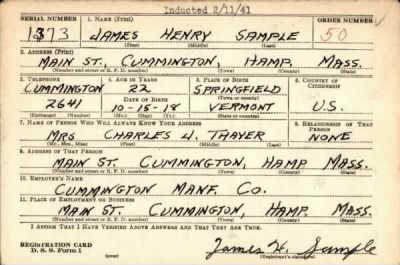 Inducted 2/11/41
SERIAL NUMBER 1. NAME (Print) ORDER NUMBER
1373 JAMES HENRY SAMPLE 50
(First) (Middle) (Last)
2. ADDRESS (Print)
MAIN ST., CUMMINGTON, HAMP. MASS.
(Number and street or R. F. D. number) (Town) (County) (State)
3. TELEPHONE 4. AGE IN YEARS 5. PLACE OF BIRTH 6. COUNTRY OF CITIZENSHIP
CUMMINGTON 22 SPRINGFIELD
DATE OF BIRTH (Town or county)
2641 10-15-18 VERMONT U.S.
(Exchange) (Number) (Mo.) (Day) (Yr.) (State or country)
7. NAME OF PERSON WHO WILL ALWAYS KNOW YOUR ADDRESS 8. RELATIONSHIP OF THAT PERSON
MRS CHARLES W. THAYER NONE
(Mr., Mrs., Miss) (First) (Middle) (Last)
9. ADDRESS OF THAT PERSON
MAIN ST. CUMMINGTON, HAMP. MASS.
(Number and street or R. F. D. number) (Town) (County) (State)
10. EMPLOYER'S NAME
CUMMINGTON MANF. CO.
11. PLACE OF EMPLOYMENT OR BUSINESS
MAIN ST. CUMMINGTON, HAMP. MASS.
(Number and street or R. F. D. number) (Town) (County) (State)
I AFFIRM THAT I HAVE VERIFIED ABOVE ANSWERS AND THAT THEY ARE TRUE.
REGISTRATION CARD
D. S. S. Form 1 (over) James H. Sample
(Registrant's signature)